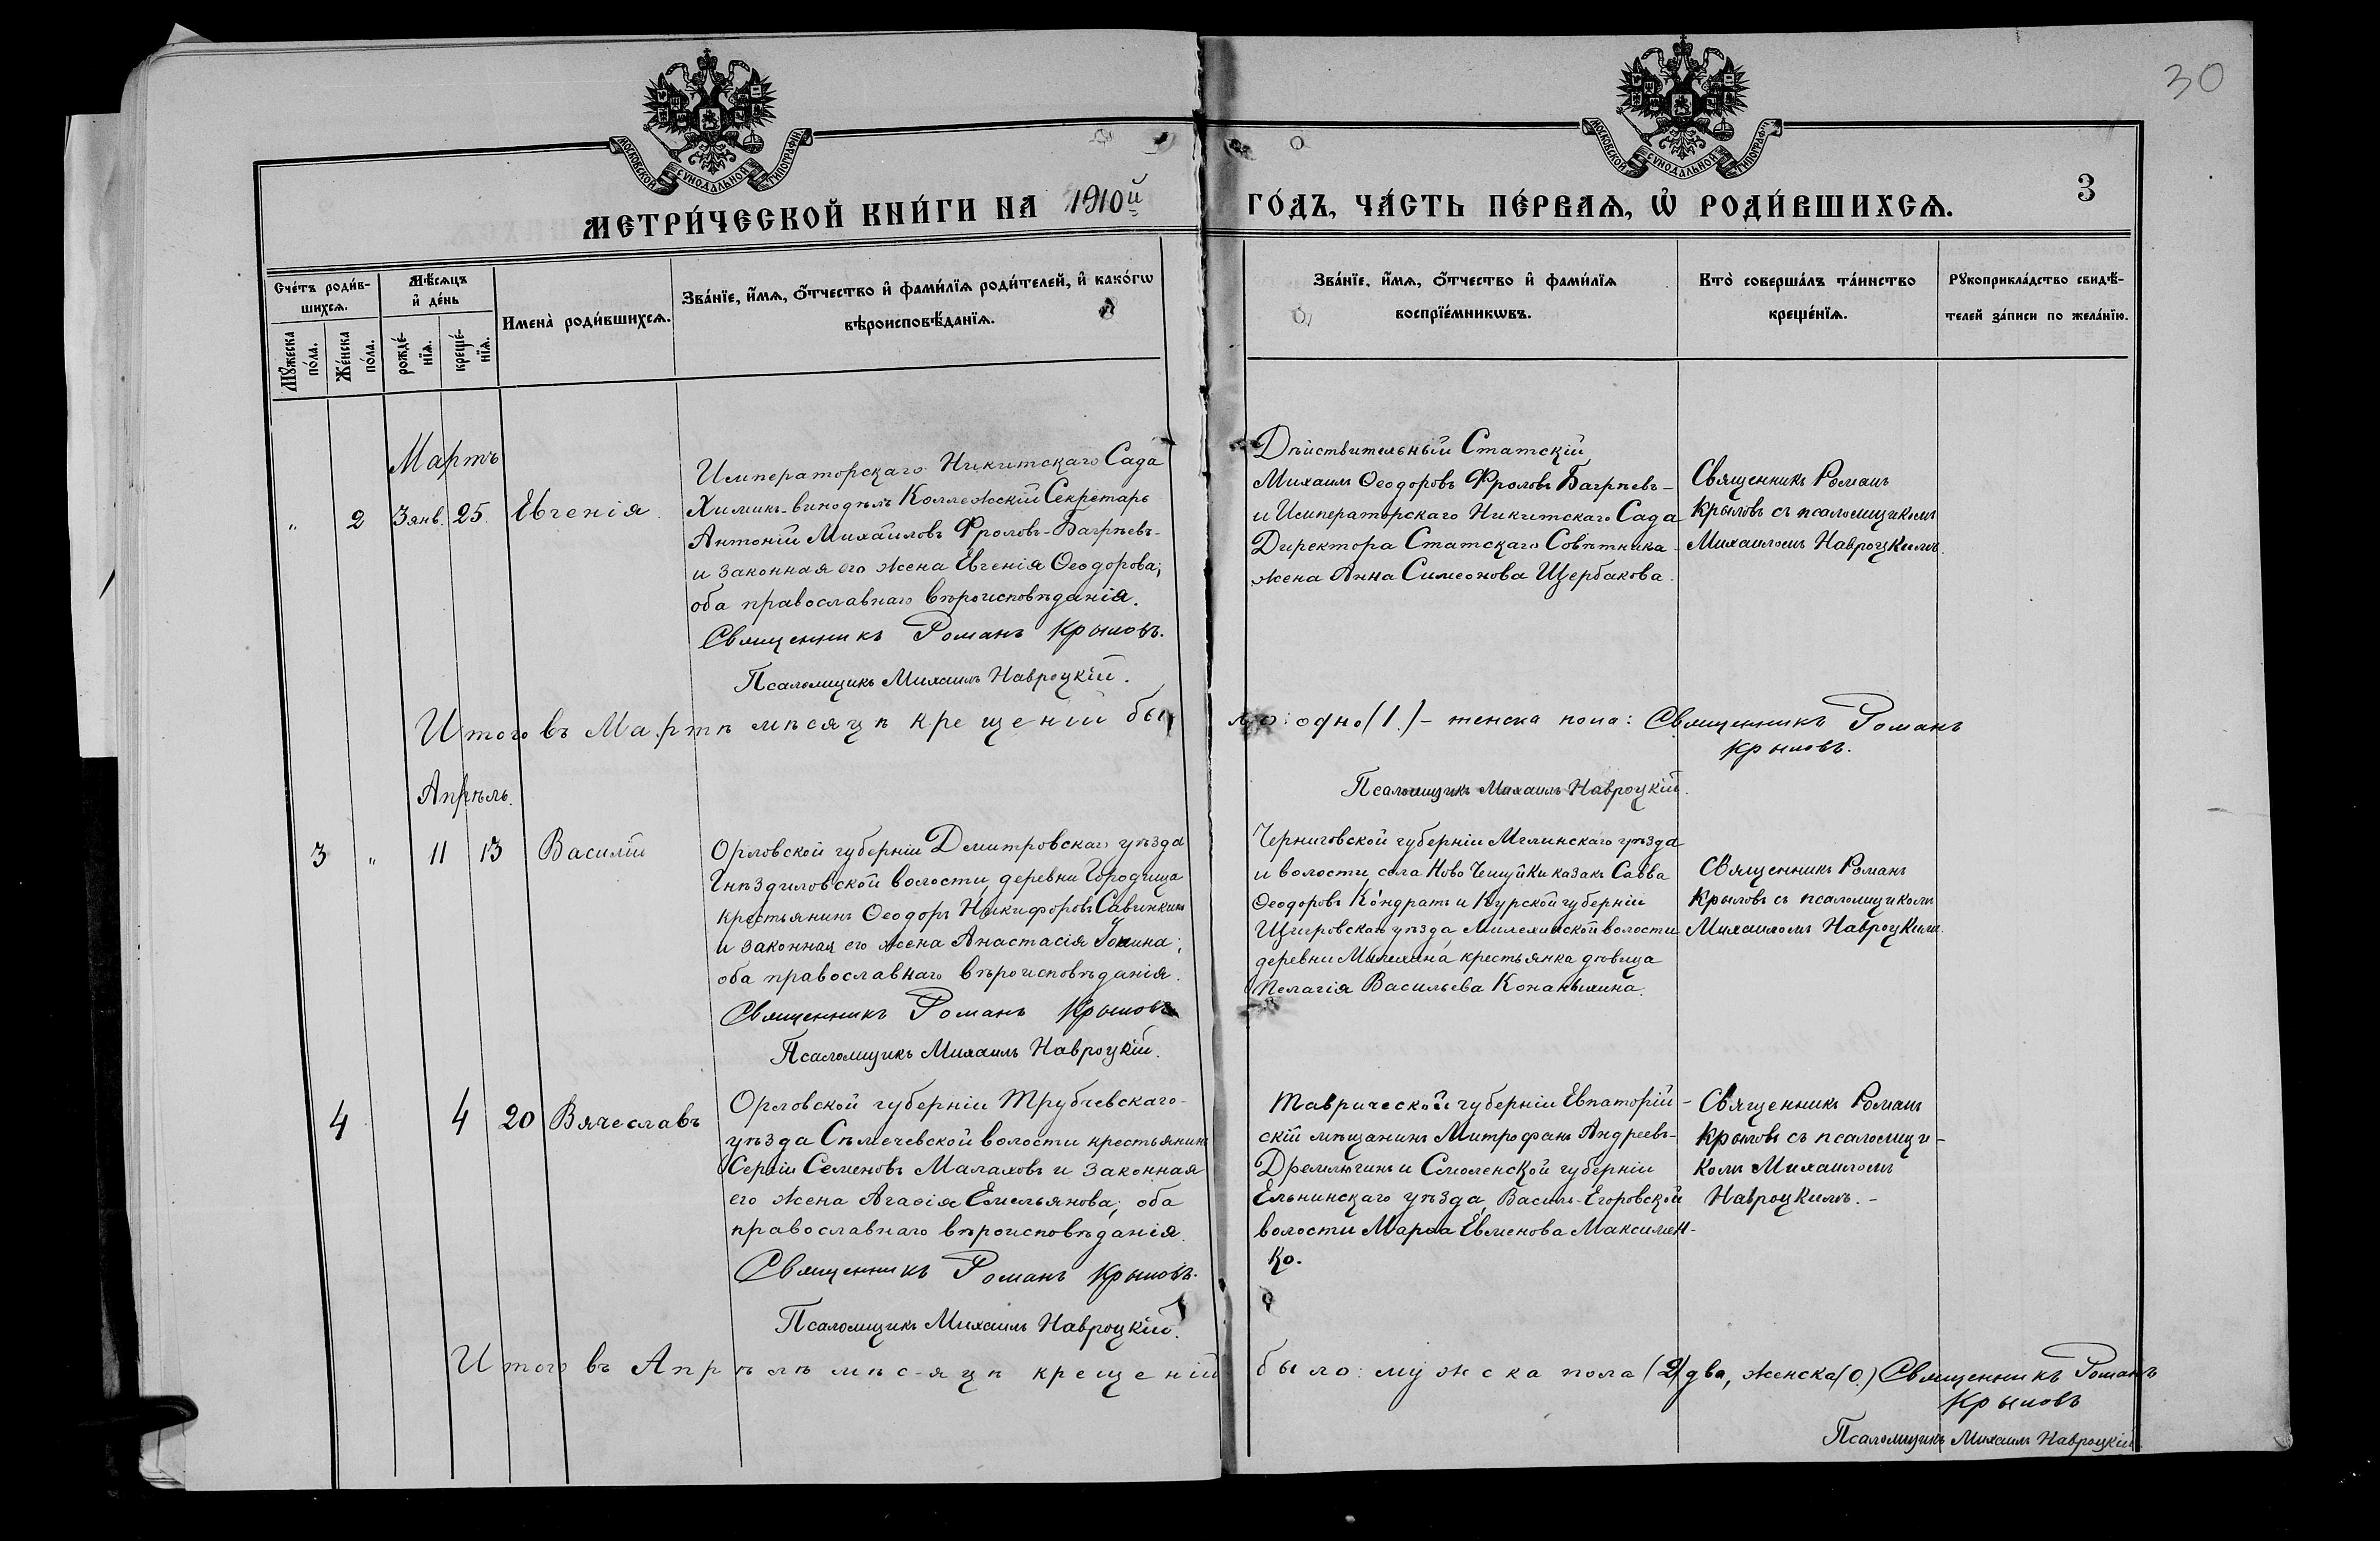 30
МОСКОВСКОЙ СѴНОДАЛЬНОЙ ТИПОГРАФІИ
МОСКОВСКОЙ СѴНОДАЛЬНОЙ ТИПОГРАФІИ
МЕТРИ́ЧЕСКОЙ КНИ́ГИ НА 1910й
ГО́ДЪ, ЧА́СТЬ ПЕ́РВАѦ, Ѽ РОДИ́ВШИХСѦ.
3
Сче́тъ роди́в-
шихсѧ.
Мꙋ́жеска
по́ла.
Же́нска
по́ла.
Мѣ́сѧцъ
и҆ де́нь
рожде́-
нїѧ.
креще́-
нїѧ.
Имена̀ роди́вшихсѧ.
Зва́нїе, и҆́мѧ, ѻ҆́тчество и҆ фами́лїѧ роди́телей, и҆ како́гѡ
вѣроисповѣ́данїѧ.
Зва́нїе, и҆́мѧ, ѻ҆́тчество и҆ фами́лїѧ
воспрїе́мникѡвъ.
Кто̀ соверша́лъ та́инство
креще́нїѧ.
Рꙋкоприкла́дство свидѣ́-
телей за́писи по жела́нїю.
Мартъ
" 2 3 янв. 25. Евгенія
Императорскаго Никитскаго Сада
Химикъ-винодѣлъ Коллежскій Секретарь
Антоній Михайловъ Фроловъ-Багрѣевъ-
и законная его жена Евгенія Ѳеодорова;
оба православнаго вѣроисповѣданія.
Священникъ Романъ Крыловъ.
Псаломщикъ Михаилъ Навроцкій.
Дѣйствительный Статскій
Михаилъ Ѳеодоровъ Фроловъ Багрѣевъ-
и Императорскаго Никитскаго Сада
Директора Статскаго Совѣтника-
жена Анна Симеонова Щербакова.
Священникъ Романъ
Крыловъ съ псаломщикомъ
Михаиломъ Навроцкимъ.
Итого въ Мартѣ мѣсяцѣ крещеній бы
ло: одно (1.) - женска пола: Священникъ Романъ
Крыловъ.
Псаломщикъ Михаилъ Навроцкій.
Апрѣль.
3 " 11 13 Василій
Орловской губерніи Дмитровскаго уѣзда
Гнѣздиловской волости, деревни Городища
крестьянинъ Ѳеодоръ Никифоровъ Савинкинъ
и законная его жена Анастасія
оба православнаго вѣроисповѣданія.
Священникъ Романъ Крыловъ
Псаломщикъ Михаилъ Навроцкій.
Черниговской губерніи Мглинскаго уѣзда
и волости, села Ново Чешуйки казакъ Савва
Ѳеодоровъ Ко́ндратъ и Курской губерніи
Щигровскаго уѣзда, Милехинской волости
деревни Милехина, крестьянка дѣвица
Пелагія Васильева Конаныхина.
Священникъ Романъ
Крыловъ съ псаломщикомъ
Михаиломъ Навроцкимъ.
4 4 20 Вячеславъ
Орловской губерніи Трубчевскаго-
уѣзда Сѣмечевской волости крестьянинъ
Сергій Семеновъ Малаховъ и законная
его жена Агаѳія Емельянова; оба
православнаго вѣроисповѣданія.
Священникъ Романъ Крыловъ.
Псаломщикъ Михаилъ Навроцкій.
Таврической губерніи Евпаторій-
скій мѣщанинъ Митрофанъ Андреевъ-
Дремлюгинъ и Смоленской губерніи
Ельнинскаго уѣзда, Василь-Егоровской
волости Марѳа Евменова Максимен-
ко.
Священникъ Романъ
Крыловъ съ псаломщи-
комъ Михаиломъ
Навроцкимъ.-
Итого въ Апрѣлѣ мѣс-яцѣ крещеній
было: мужска пола (2) два, женска (0.) Священникъ Романъ
Крыловъ
Псаломщикъ Михаилъ Навроцкій.